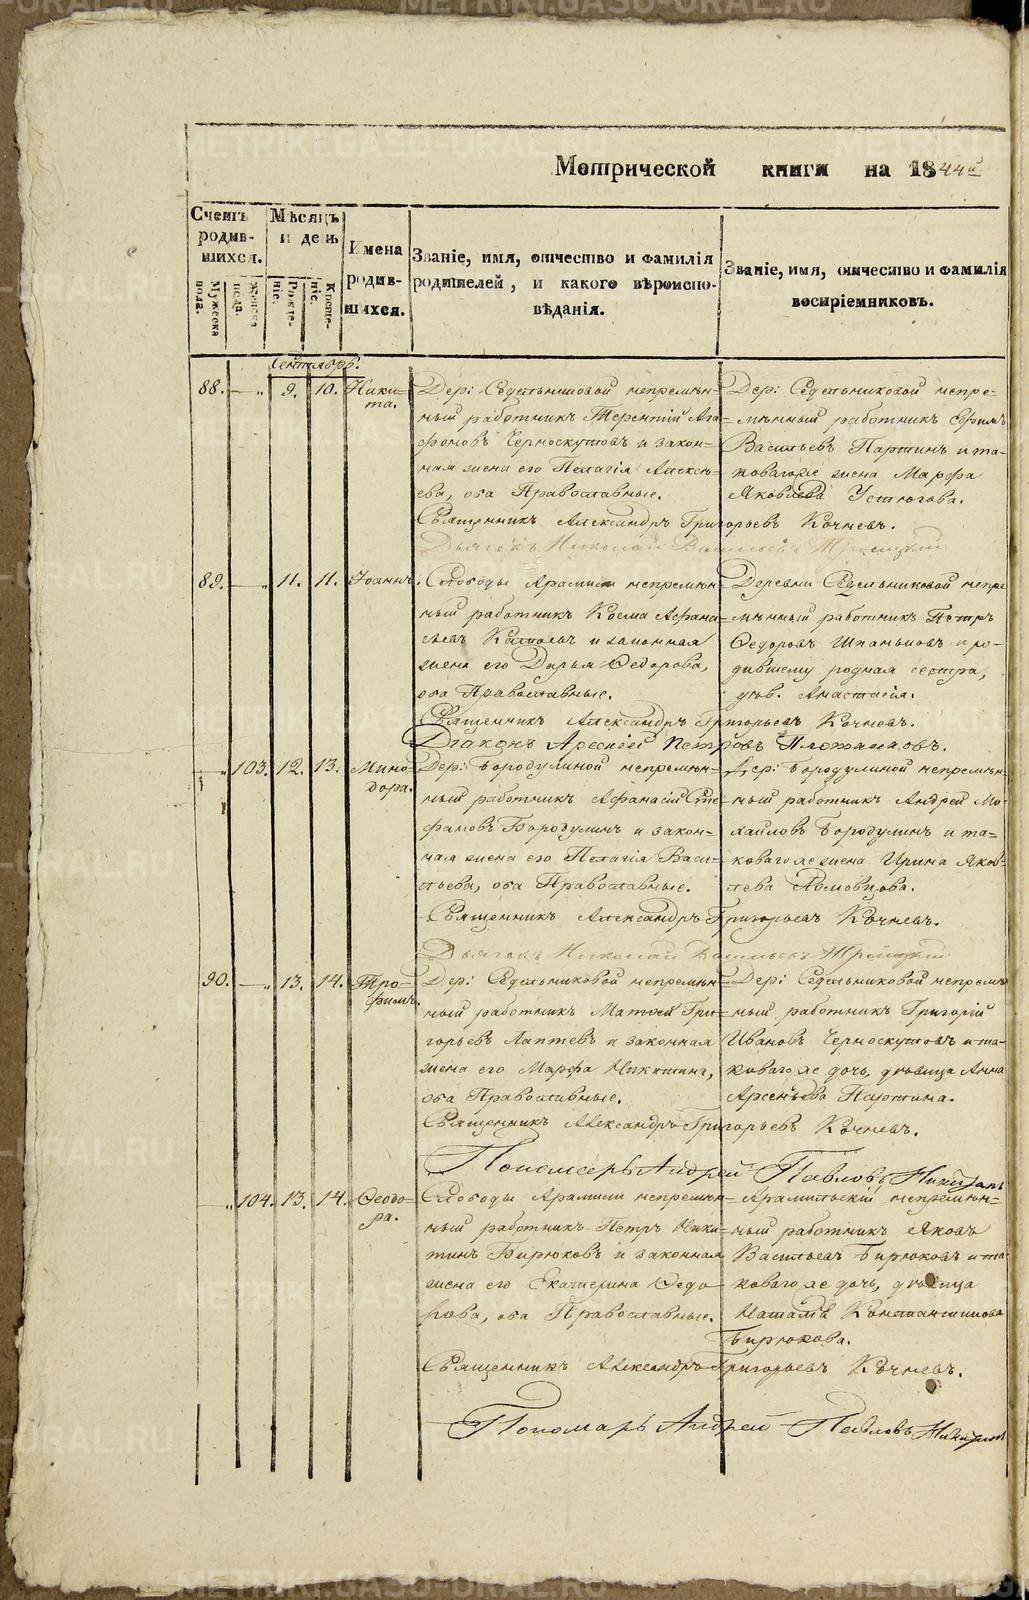 Метрической книги на 1844й
Счетъ родив-шихся.
Мужеска пола.
Женска пола.
Мѣсяцъ и день
Рожде-ніе.
Креще-ніе.
Имена родив-шихся.
Званіе, имя, отчество и фамилія
родителей, и какого вѣроиспо-
вѣданія.
Званіе, имя, отчество и фамилія
воспріемниковъ.
Сентябрь.
88. — „ 9. 10. Ники-
та.
Дер: Седельниковой непремѣн-
ный работникъ Терентій Ага-
фоновъ Черноскутовъ и закон-
ная жена его Пелагія Алексѣ-
ева, оба Православные.
Дер: Седельниковой непре-
мѣнный работникъ Ефимъ
Васильевъ Партинъ и та-
коваго же жена Марфа
Яковлева Устюгова.
Священникъ Александръ Григорьевъ Кочневъ.
Дьячекъ Николай Васильевъ Троицкій
89. — „ 11. 11. Іоаннъ.
Слободы Арамили непремѣн-
ный работникъ Косма Афана-
сьевъ и законная
жена его Дарья Ѳедорова,
оба Православные.
Деревни Седельниковой непре-
мѣнный работникъ Петръ
Ѳедоровъ Шпаньковъ и ро-
дившему родная сестра,
дѣв. Анастасія.
Священникъ Александръ Григорьевъ Кочневъ.
Діаконъ Арсеній Петровъ Плотниковъ.
— „ 103. 12. 13. Мино-
дора.
Дер: Бородулиной непремѣн-
ный работникъ Афанасій Сте-
фановъ Бородулинъ и закон-
ная жена его Пелагія Васи-
льева, оба Православные.
Дер: Бородулиной непремѣн-
ный работникъ Андрей Ми-
хайловъ Бородулинъ и та-
коваго же жена Ирина Яков-
лева
Священникъ Александръ Григорьевъ Кочневъ.
Дьячекъ Николай Васильевъ Троицкій
90. — „ 13. 14. Тро-
фимъ.
Дер: Седельниковой непремѣн-
ный работникъ Матѳей Гри-
горьевъ Лаптевъ и законная
жена его Марфа Никитина,
оба Православные.
Дер: Седельниковой непремѣн
ный работникъ Григорій
Ивановъ Черноскутовъ и та-
коваго же дочь, дѣвица Анна
Арсеньева Партина.
Священникъ Александръ Григорьевъ Кочневъ.
Пономарь Андрей Павловъ Никитинъ
— „ 104. 13. 14. Ѳеодо-
ра.
Слободы Арамили непремѣн-
ный работникъ Петръ Ники-
тинъ Бирюковъ и законная
жена его Екатерина Ѳедо-
рова, оба Православные.
Арамильскій непремѣн-
ный работникъ Яковъ
Васильевъ Бирюковъ и та-
коваго же дочь, дѣвица
Наталія Константинова
Бирюкова.
Священникъ Александръ Григорьевъ Кочневъ.
Пономарь Андрей Павловъ Никитинъ
METRIKI.GASO-URAL.RU